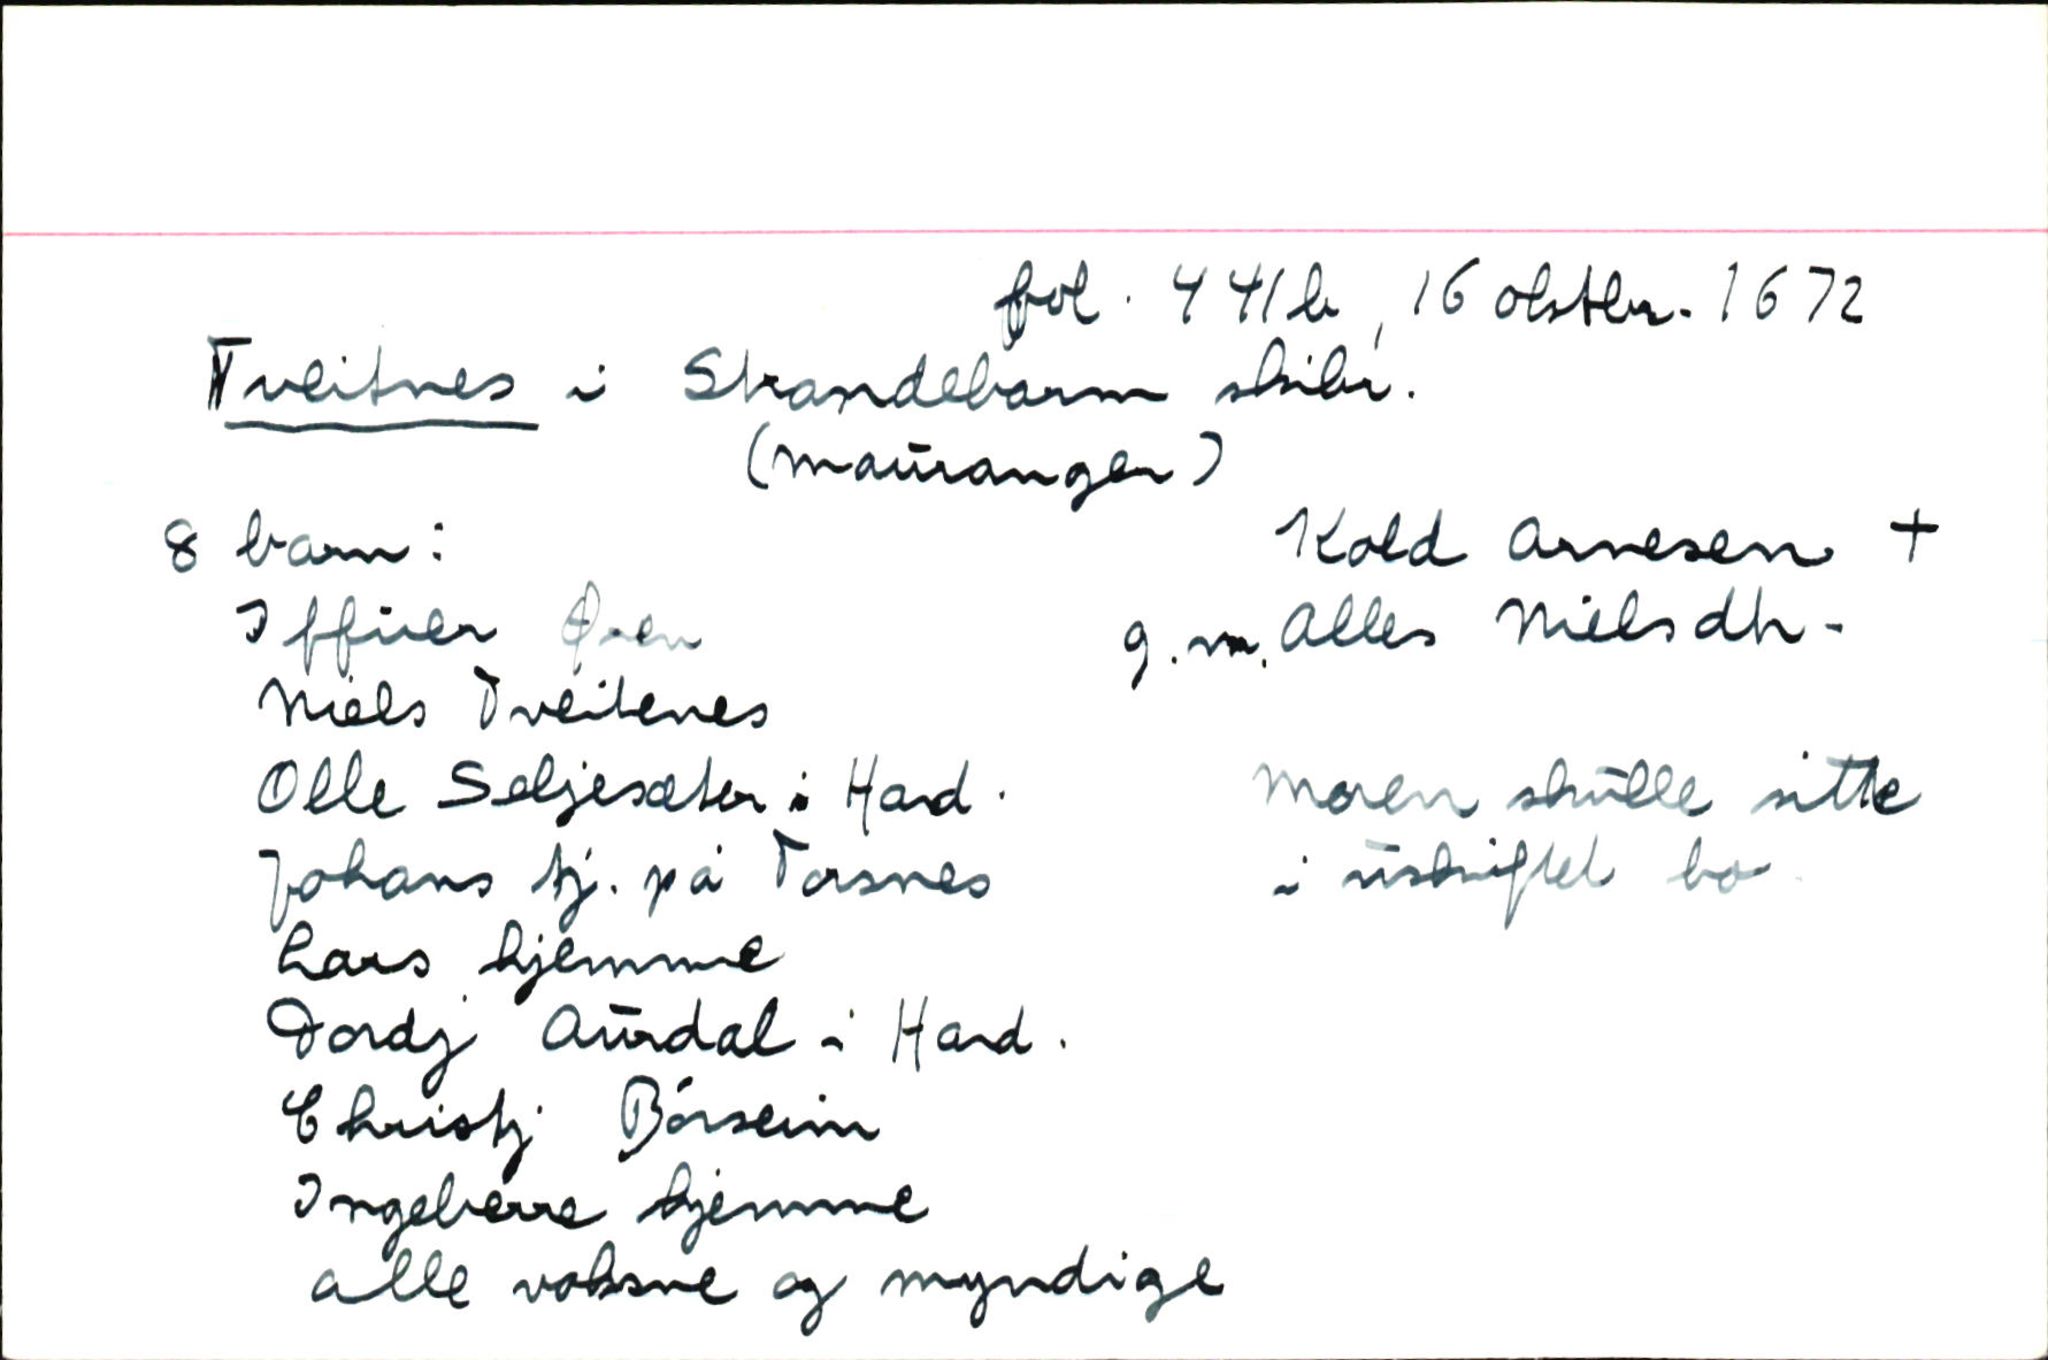 fol. 441b, 16 oktbr. 1672
Tveitnes i Strandebarm skibr.
(Mauranger)
8 barn:
Kold Arnesen +
Iffuer Øren
g.m. Alles Nielsdtr.
Niels Tveitenes
Olle Seljesæter i Hard.
Moren skulle sitte
Johans tj. på Torsnes
i uskiftet bo
Lars hjemme
Dordj Aurdal i Hard.
Christj Børseim
Ingeberre hjemme
alle voksne og myndige